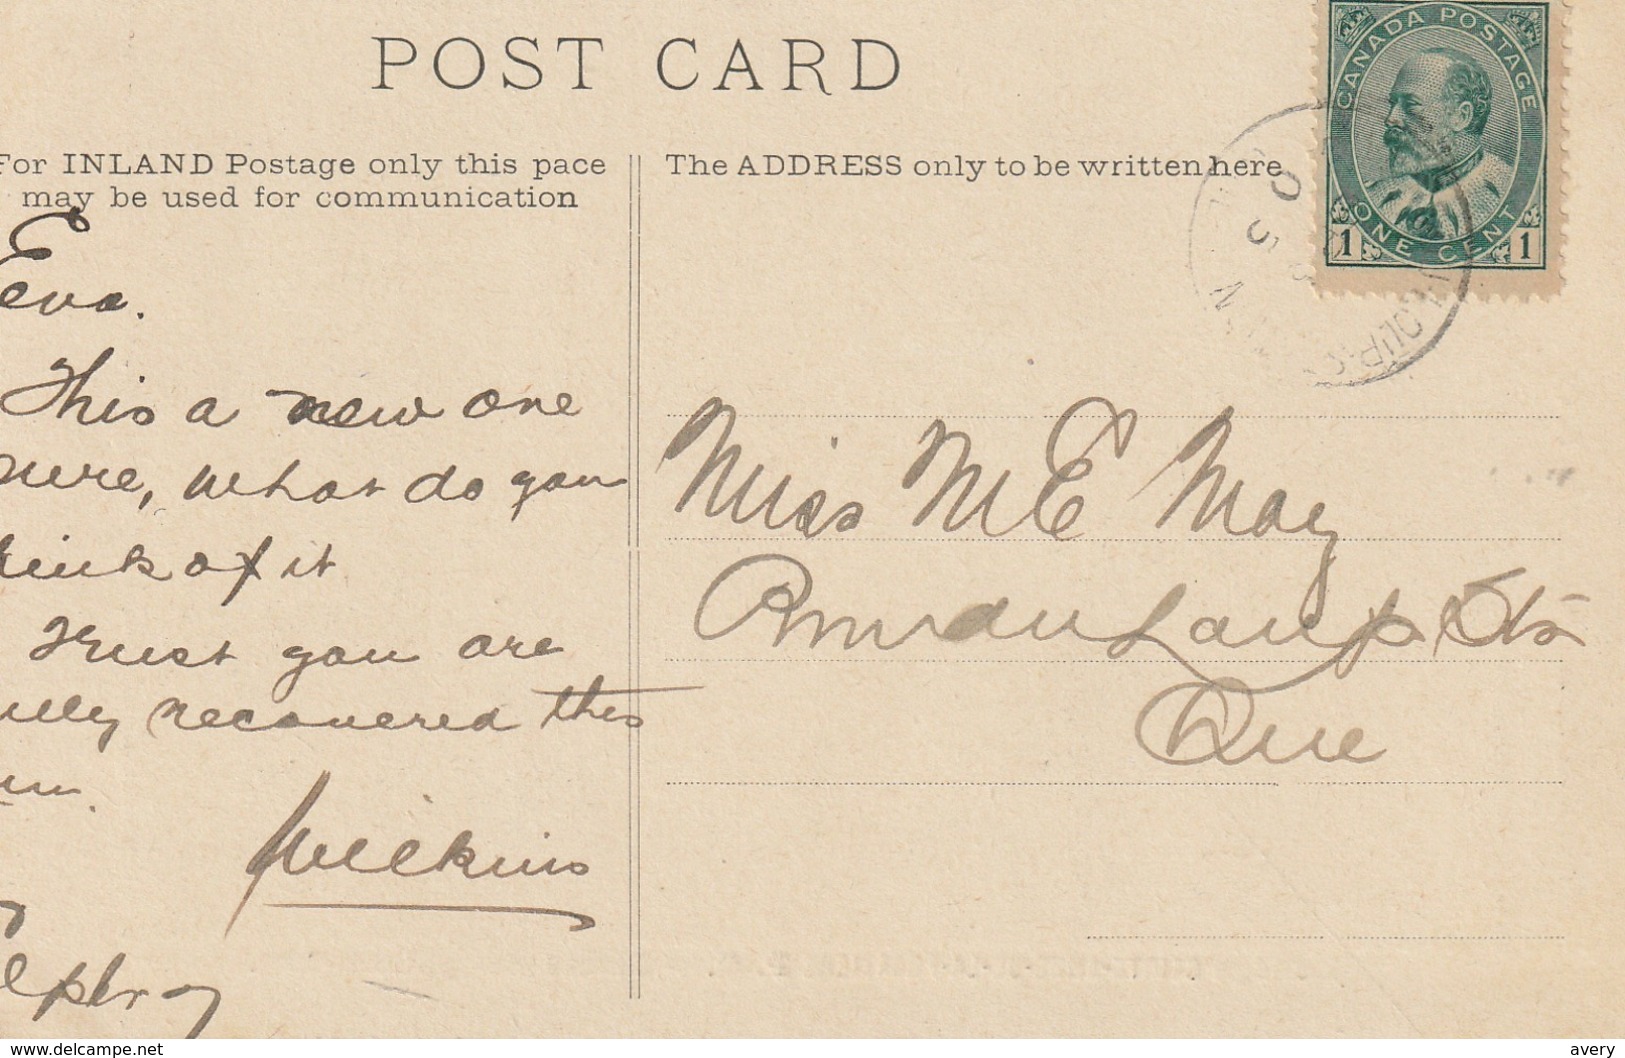 POST CARD
For INLAND Postage only this pace
may be used for communication
Eva.
This a new one
here, what do you
think of it
Trust you are
fully recovered this
Wilkins
The ADDRESS only to be written here
CANADA POSTAGE
ONE CENT
1 1
Miss M E May
Que
www.delcampe.net
avery